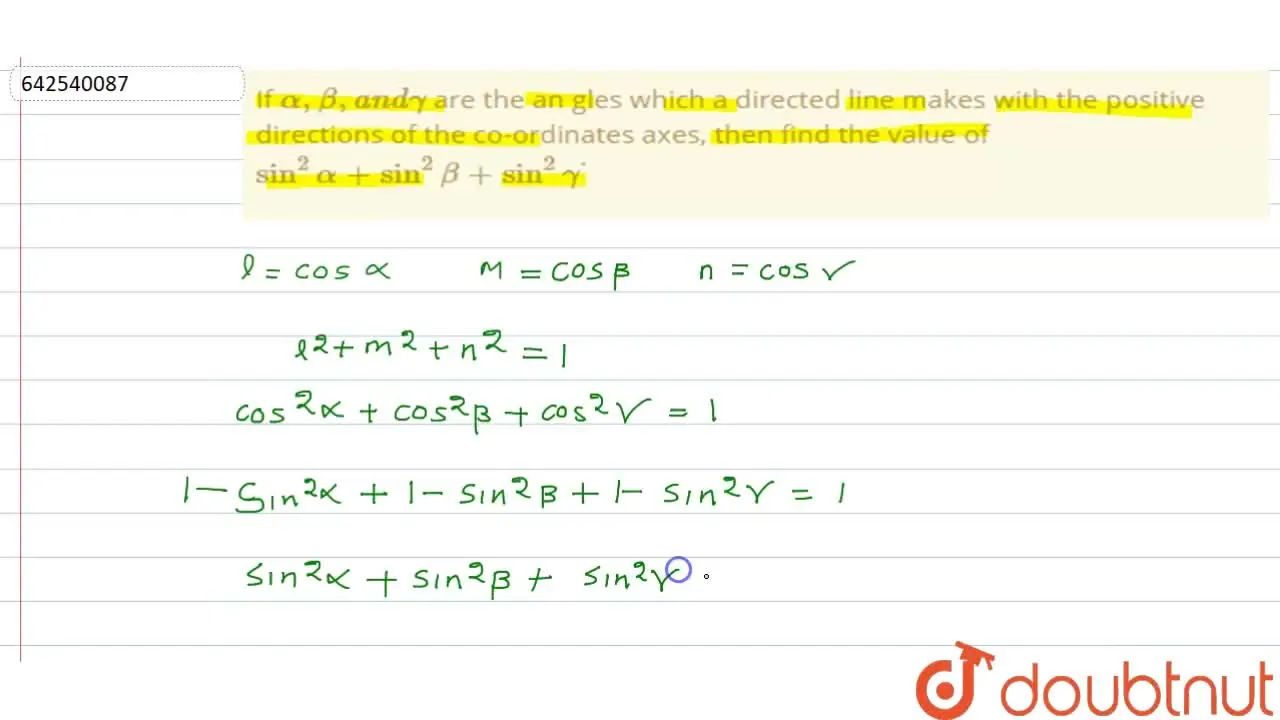 642540087
If α, β, and γ are the an gles which a directed line makes with the positive
directions of the co-ordinates axes, then find the value of
sin² α + sin² β + sin² γ˙
l = cos α m = cos β n = cos γ
l² + m² + n² = 1
cos²α + cos²β + cos²γ = 1
1 - Sin²α + 1 - sin²β + 1 - sin²γ = 1
sin²α + sin²β + sin²γ
doubtnut